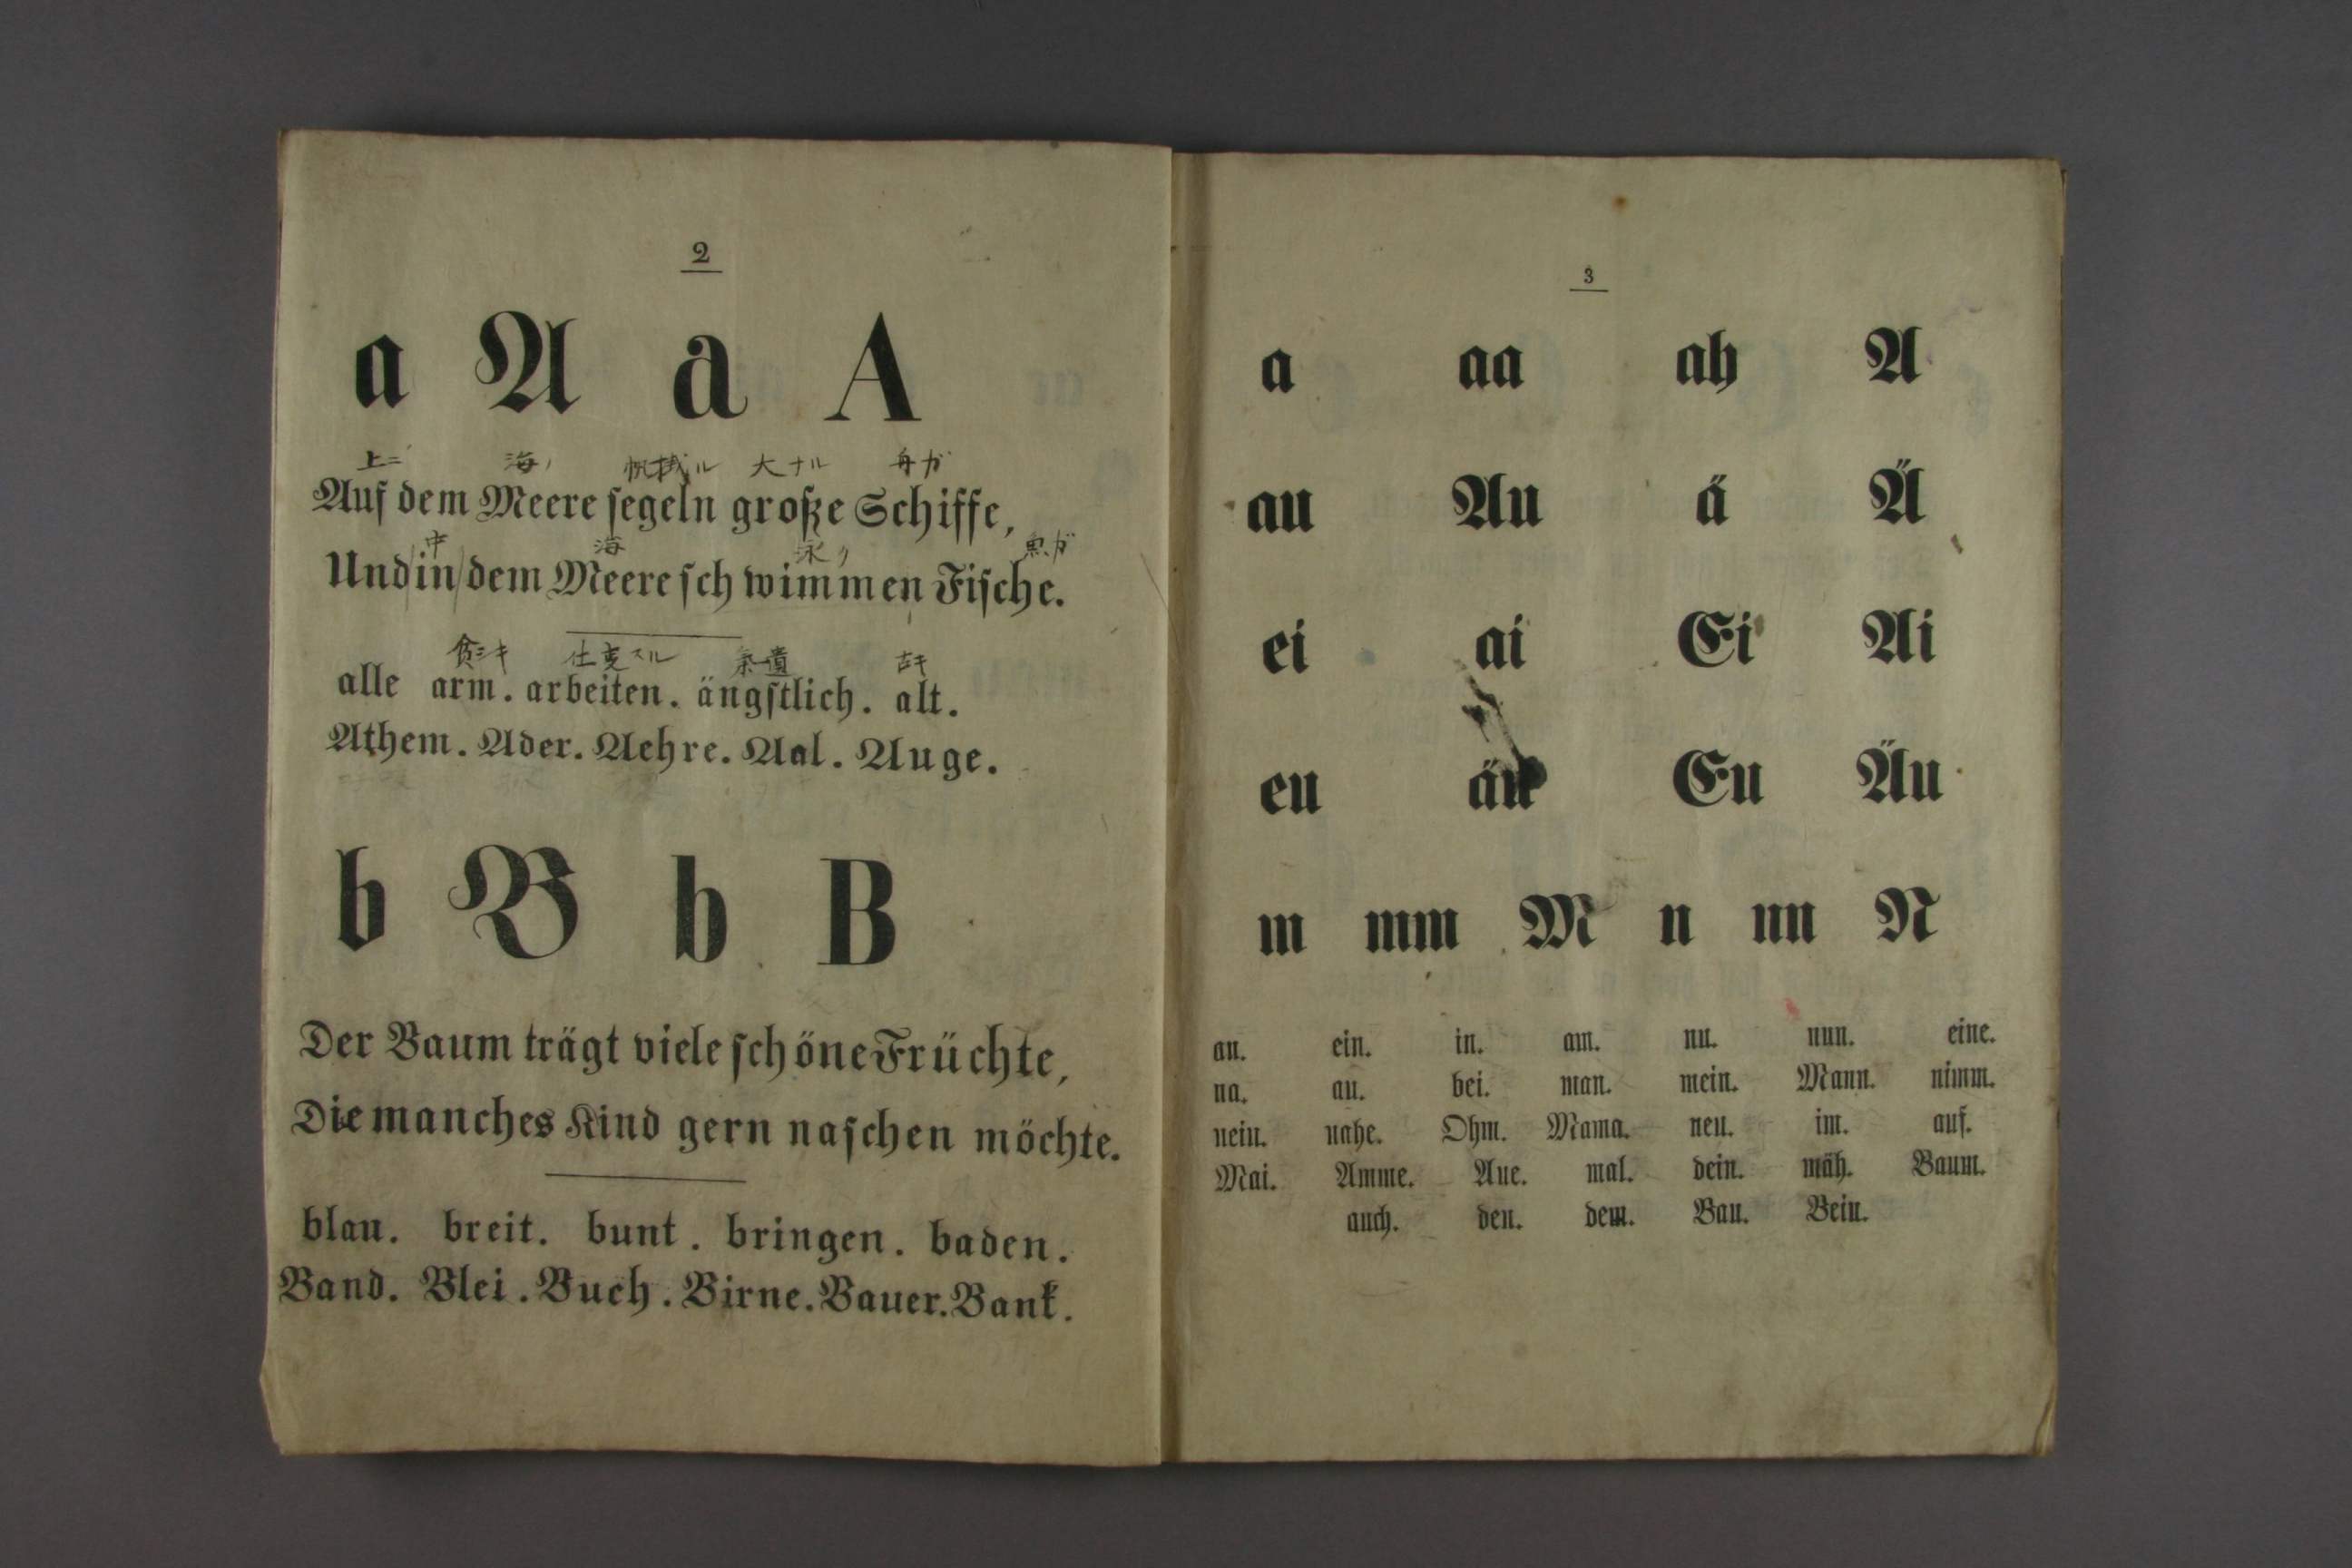 2
a A a A
上ニ 海ノ 帆掛ル 大ナル 舟ガ
Auf dem Meere ſegeln große Schiffe,
中 海 泳り 魚ガ
Und in dem Meere ſchwimmen Fiſche.
貧シキ 古キ
alle arm. arbeiten. ängſtlich. alt.
Athem. Ader. Aehre. Aal. Auge.
b B b B
Der Baum trägt viele ſchöne Früchte,
Die manches Kind gern naſchen möchte.
blau. breit. bunt. bringen. baden.
Band. Blei. Buch. Birne. Bauer. Bank.
3
a aa ah A
au Au ä Ä
ei ai Ei Ai
eu äu Eu Äu
m mm M n nn N
an. ein. in. am. nu. nun. eine.
na. au. bei. man. mein. Mann. nimm.
nein. nahe. Ohm. Mama. neu. im. auf.
Mai. Amme. Aue. mal. dein. mäh. Baum.
auch. den. dem. Bau. Bein.